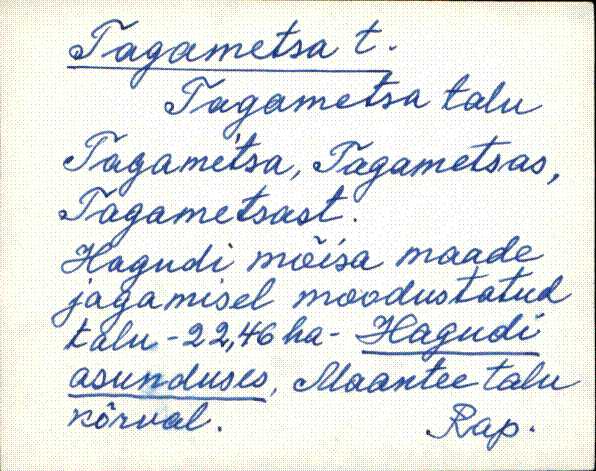 Tagametsa t.
Tagametsa talu
Tagametsa, Tagametsas,
Tagametsast.
Hagudi mõisa maade
jagamisel moodustatud
talu - 22,46 ha - Hagudi
asunduses, Maantee talu
kõrval. Rap.